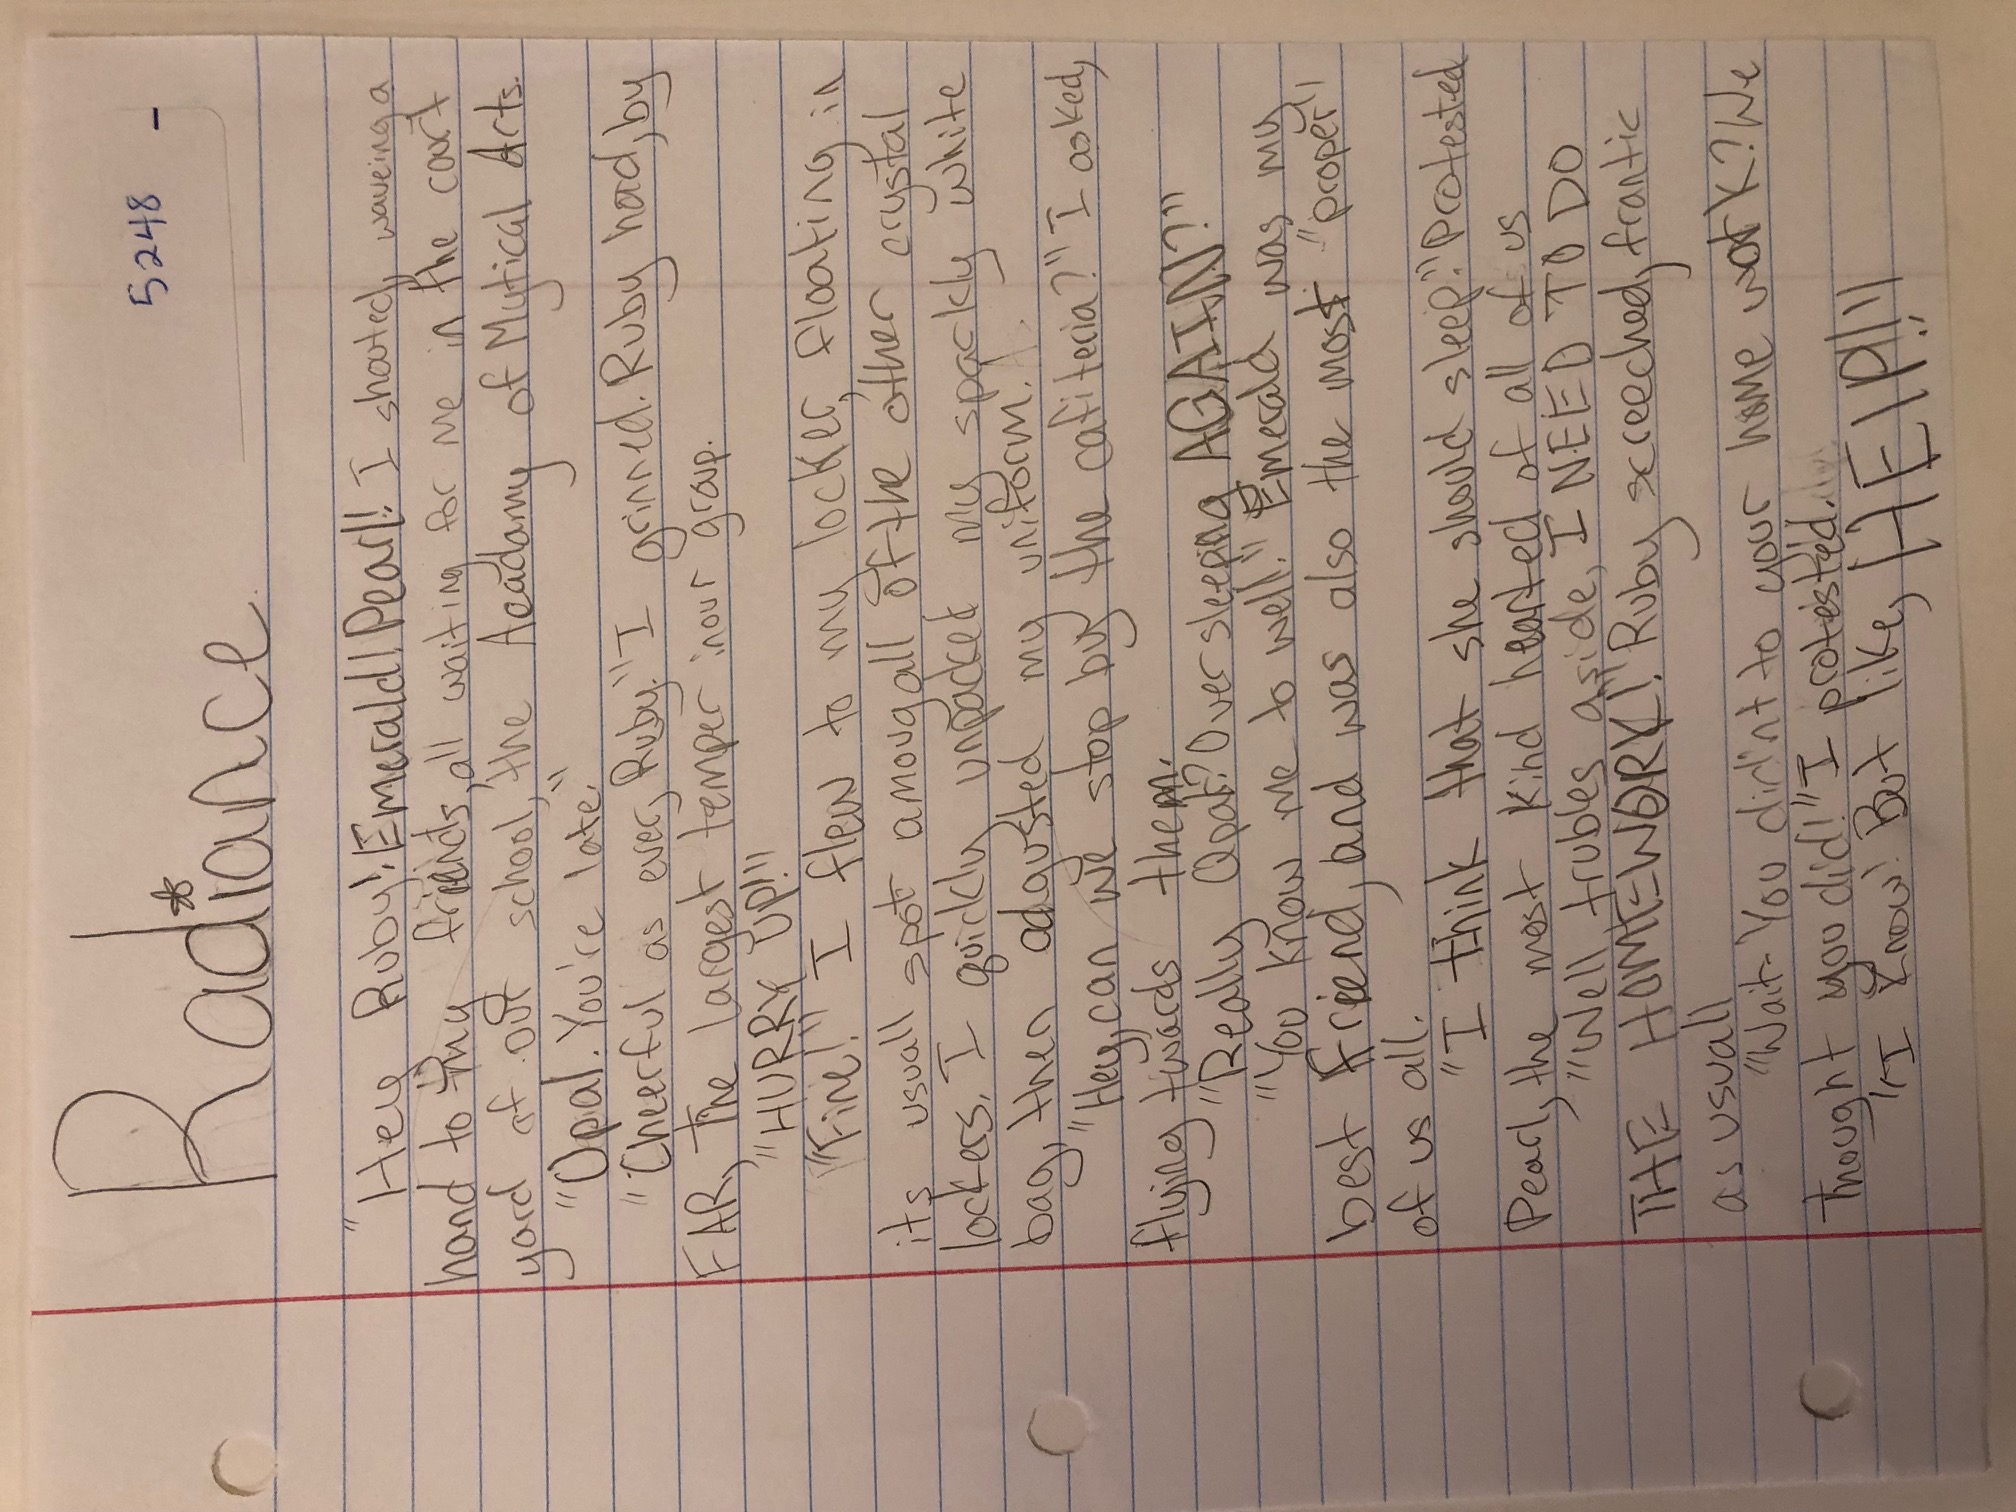 Radiance
5248 -
"Hey Ruby! Emerald! Pearl! I shouted, waveing a
hand to my friends, all waiting for me in the court
yard of our school, the Acadamy of Mytical Arts.
"Opal. You're late."
"Cheerful as ever, Ruby." I grinned. Ruby had, by
FAR, the largest temper inour group.
"HURRY UP!"
"Fine!" I flew to my locker, floating in
its usuall spot amoug all of the other crystal
lockers. I quickly unpacked my sparkly white
bag, then adgusted my uniform.
"Hey, can we stop by the cafiteria?" I asked,
flying twards them.
"Really Opal? Over sleeping AGAIN?"
"You know me to well." Emerald was my
best friend, and was also the most "proper"
of us all.
"I think that she should sleep." Protested
Pearl, the most kind hearted of all of us
"Well, trubles aside, I NEED TO DO
THE HOMEWORK!" Ruby screeched, frantic
as usuall
"Wait- You did'nt to your home work? We
thought you did!" I protested.
"I know! But like, HElP!!"